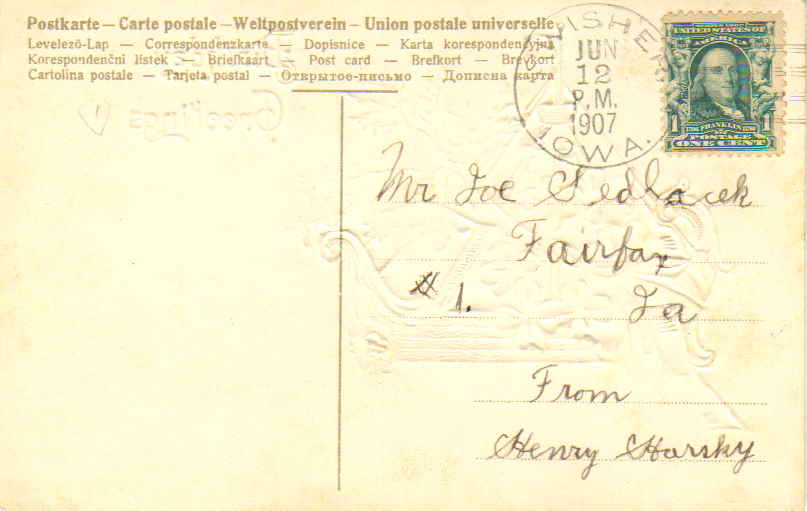 Postkarte — Carte postale — Weltpostverein — Union postale universelle
Levelező-Lap — Correspondenzkarte — Dopisnice — Karta korespondencyjna
Korespondenční lístek — Briefkaart — Post card — Brefkort — Brevkort
Cartolina postale — Tarjeta postal — Открытое-письмо — Дописна карта
JUN
12
P.M.
1907
IOWA.
UNITED STATES OF
AMERICA
1 FRANKLIN 1
POSTAGE
ONE CENT
Greetings
Mr Joe Sedlacek
Fairfax
# 1. Ia
From
Henry Horsky